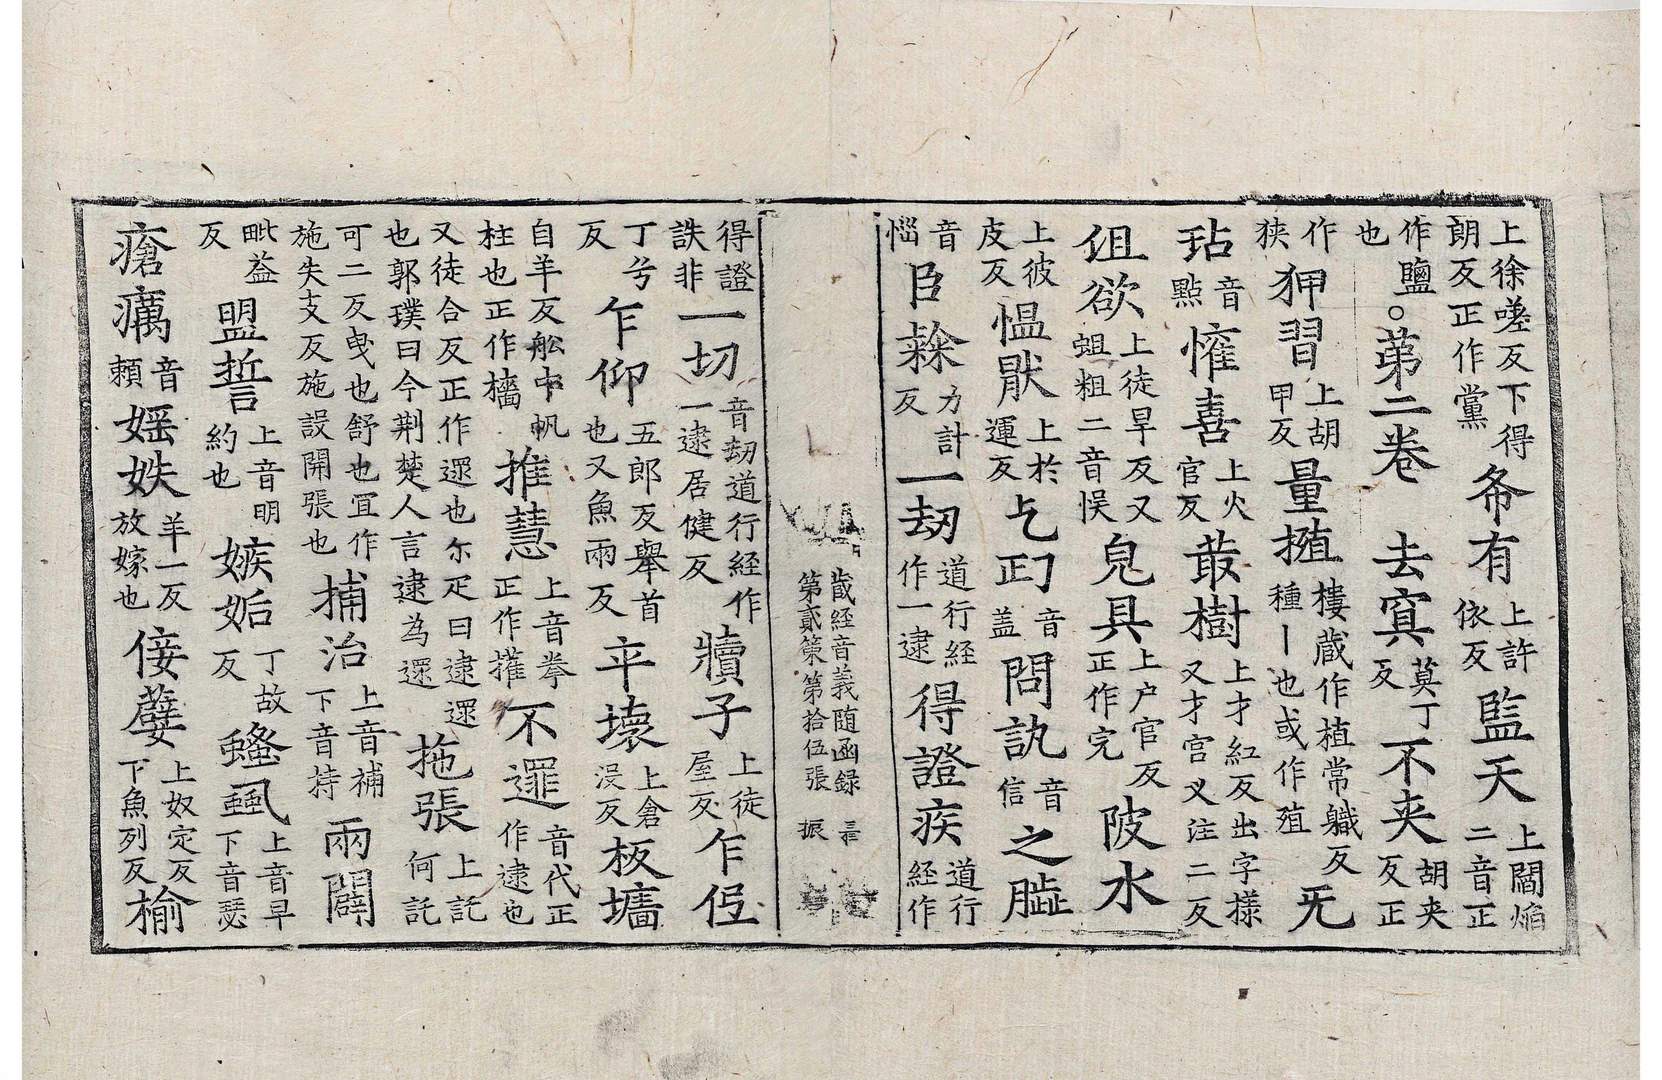 上徐嗟反下得朗反正作黨希有上許依反監天上閻焰二音正
作鹽也。第二卷 去寘莫丁反不夾胡夾反正
作狭狎習上胡甲反量樓蔵作植常軄反種丨也或作殖旡
玷音點懽喜上火官反菆樹上才紅反出字樣又才宫义注二反
伹欲上徒旱反又蛆粗二音悮皃具上户官反正作完陂水
上彼皮反愠猒上於運反乞匃音盖問訙音信之
音惱臣力計反一刼道行経作一逮得證疾道行経作
蔵経音義随函録
第貳筞第拾伍張 振
得證非一切音刼道行経作一逮居健反犢子上徒屋反乍俓
丁兮反乍仰五郎反舉首也又魚兩反平壊上倉浸反板墻
自羊反舩中帆柱也正作樯推慧上音拳正作攉不遝音代正作逮也
又徒合反正作遝也尓疋曰逮遝也郭璞曰今荆楚人言逮為遝拖張上託何託
可二反曳也舒也冝作施失支反施設開張也捕治上音補下音持兩闢
毗益反盟誓上音明約也嫉妬丁故反虱上音早下音瑟
瘡癘音頼婬妷羊一反放嫁也侫孽上奴定反下魚列反榆